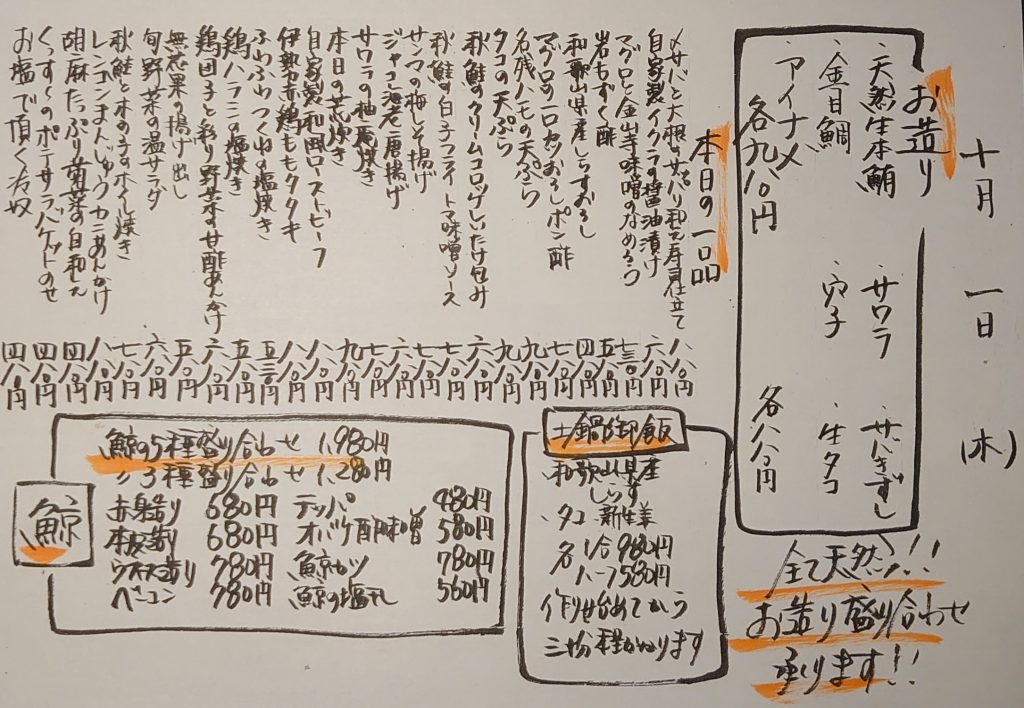 十月 一日 (木)
お造り
・天然生本鮪 ・サワラ ・サバきずし
・金目鯛 ・穴子 ・生タコ
・アイナメ
各九八〇円 各八八〇円
全て天然!!
お造り盛り合わせ
承ります!!
本日の一品
〆サバと大根のサッパリ和え寿司仕立て 八八〇円
自家製イクラの醤油漬け 六八〇円
マグロと金山寺味噌のなめろう 七三〇円
岩もずく酢 五八〇円
和歌山県産しらすおろし 四八〇円
マグロの一口カツおろしポン酢 七八〇円
名残ハモの天ぷら 九八〇円
タコの天ぷら 九八〇円
秋鮭のクリームコロッケしいたけ包み 六八〇円
秋鮭の白子フライトマト味噌ソース 七八〇円
サンマの梅しそ揚げ 七八〇円
ジャコ海老唐揚げ 六八〇円
サワラの柚庵焼き 七八〇円
本日の荒炊き 九八〇円
自家製和風ローストビーフ 八八〇円
伊勢赤鶏ももタタキ 八八〇円
ふわふわつくねの塩焼き 五三〇円
鶏ハラミの塩焼き 五八〇円
鶏団子と彩り野菜の甘酢あんかけ 六八〇円
無花果の揚げ出し 五八〇円
旬野菜の温サラダ 六八〇円
秋鮭と木の子のホイル焼き 七八〇円
レンコンまんじゅうカニあんかけ 八八〇円
胡麻たっぷり菊菜の白和え 四八〇円
くんすモのポテサラバケットのせ 四八〇円
お塩で頂く冷奴 四八〇円
土鍋御飯
和歌山県産
しらす
・タコ・新生姜
各1合980円
ハーフ580円
作り始めてから
三十分程かかります
鯨
鯨の5種盛り合わせ 1,980円
〃3種盛り合わせ 1,280円
赤身造り 680円 テッパ 480円
本皮造り 680円 オバケ酢味噌 580円
ウネス造り 780円 鯨カツ 780円
ベーコン 780円 鯨の塩干し 560円